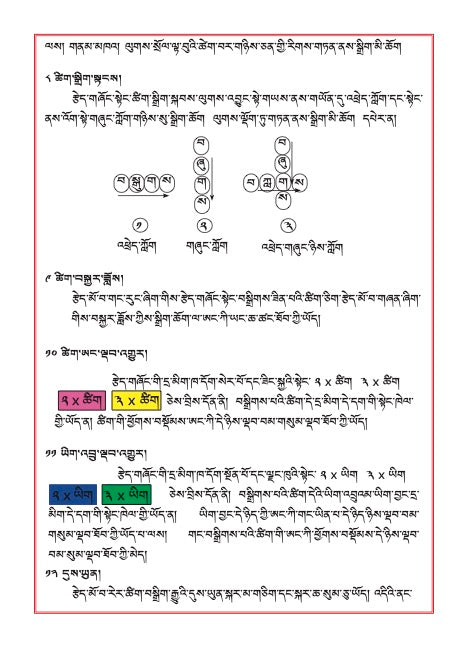 ལས། གནམ་མཁའ། ལུགས་སྲོལ་ལྟ་བུའི་ཚེག་བར་གཉིས་ཅན་གྱི་རིགས་གཏན་ནས་སྒྲིག་མི་ཆོག
༨ ཚིག་སྒྲིག་སྟངས།
རྩེད་གཞོང་སྟེང་ཚིག་སྒྲིག་སྐབས་ལུགས་འབྱུང་སྟེ་གཡས་ནས་གཡོན་དུ་འཕྲེད་ཀློག་དང་སྟེང་
ནས་འོག་སྟེ་གཞུང་ཀློག་གཉིས་སུ་སྒྲིག་ཆོག ལུགས་ལྡོག་ཏུ་གཏན་ནས་སྒྲིག་མི་ཆོག དཔེར་ན།
བ སྒྲུ ག ས
བ ཞུ ག ས
བ ཞུ
བ ཀླ ག ས
ས
༡ ༢ ༣
འཕྲེད་ཀློག གཞུང་ཀློག འཕྲེད་གཞུང་ཉིས་ཀློག
༩ ཚིག་བསྐྱར་ཟློས།
རྩེད་མོ་བ་གང་རུང་ཞིག་གིས་རྩེད་གཞོང་སྟེང་བསྒྲིགས་ཟིན་པའི་ཚིག་ཅིག་རྩེད་མོ་བ་གཞན་ཞིག་
གིས་བསྐྱར་ཟློས་ཀྱིས་སྒྲིག་ཆོག་ལ་ཨང་ཀི་ཡང་ཆ་ཚང་ཐོབ་ཀྱི་ཡོད།
༡༠ ཚིག་ཨང་ལྡབ་འགྱུར།
རྩེད་གཞོང་གི་དྲ་མིག་ཁ་དོག་སེར་པོ་དང་ཟིང་སྐྱའི་སྟེང་ ༢ x ཚིག ༣ x ཚིག
༢ x ཚིག ༣ x ཚིག ཅེས་བྲིས་དོན་ནི། བསྒྲིགས་པའི་ཚིག་དེ་དྲ་མིག་དེ་དག་གི་སྟེང་ཁེལ་
གྱི་ཡོད་ན། ཚིག་གི་ཕྱོགས་བསྡོམས་ཨང་ཀི་དེ་ཉིས་ལྡབ་བམ་གསུམ་ལྡབ་ཐོབ་ཀྱི་ཡོད།
༡༡ ཡིག་འབྲུ་ལྡབ་འགྱུར།
རྩེད་གཞོང་གི་དྲ་མིག་ཁ་དོག་སྔོན་པོ་དང་ལྗང་ཁུའི་སྟེང་ ༢ x ཡིག ༣ x ཡིག
༢ x ཡིག ༣ x ཡིག ཅེས་བྲིས་དོན་ནི། བསྒྲིགས་པའི་ཚིག་དེའི་ཡིག་འབྲུའམ་ཡིག་བྱང་དྲ་
མིག་དེ་དག་གི་སྟེང་ཁེལ་གྱི་ཡོད་ན། ཡིག་བྱང་དེ་ཉིད་ཀྱི་ཨང་ཀི་གང་ཡིན་པ་དེ་ཉིད་ཉིས་ལྡབ་བམ་
གསུམ་ལྡབ་ཐོབ་ཀྱི་ཡོད་པ་ལས། གང་བསྒྲིགས་པའི་ཚིག་གི་ཨང་ཀི་ཕྱོགས་བསྡོམས་དེ་ཉིས་ལྡབ་
བམ་སུམ་ལྡབ་ཐོབ་ཀྱི་མེད།
༡༢ དུས་ཡུན།
རྩེད་མོ་བ་རེར་ཚིག་བསྒྲིག་རྒྱུའི་དུས་ཡུན་སྐར་མ་གཅིག་དང་སྐར་ཆ་སུམ་ཅུ་ཡོད། འདིའི་ནང་